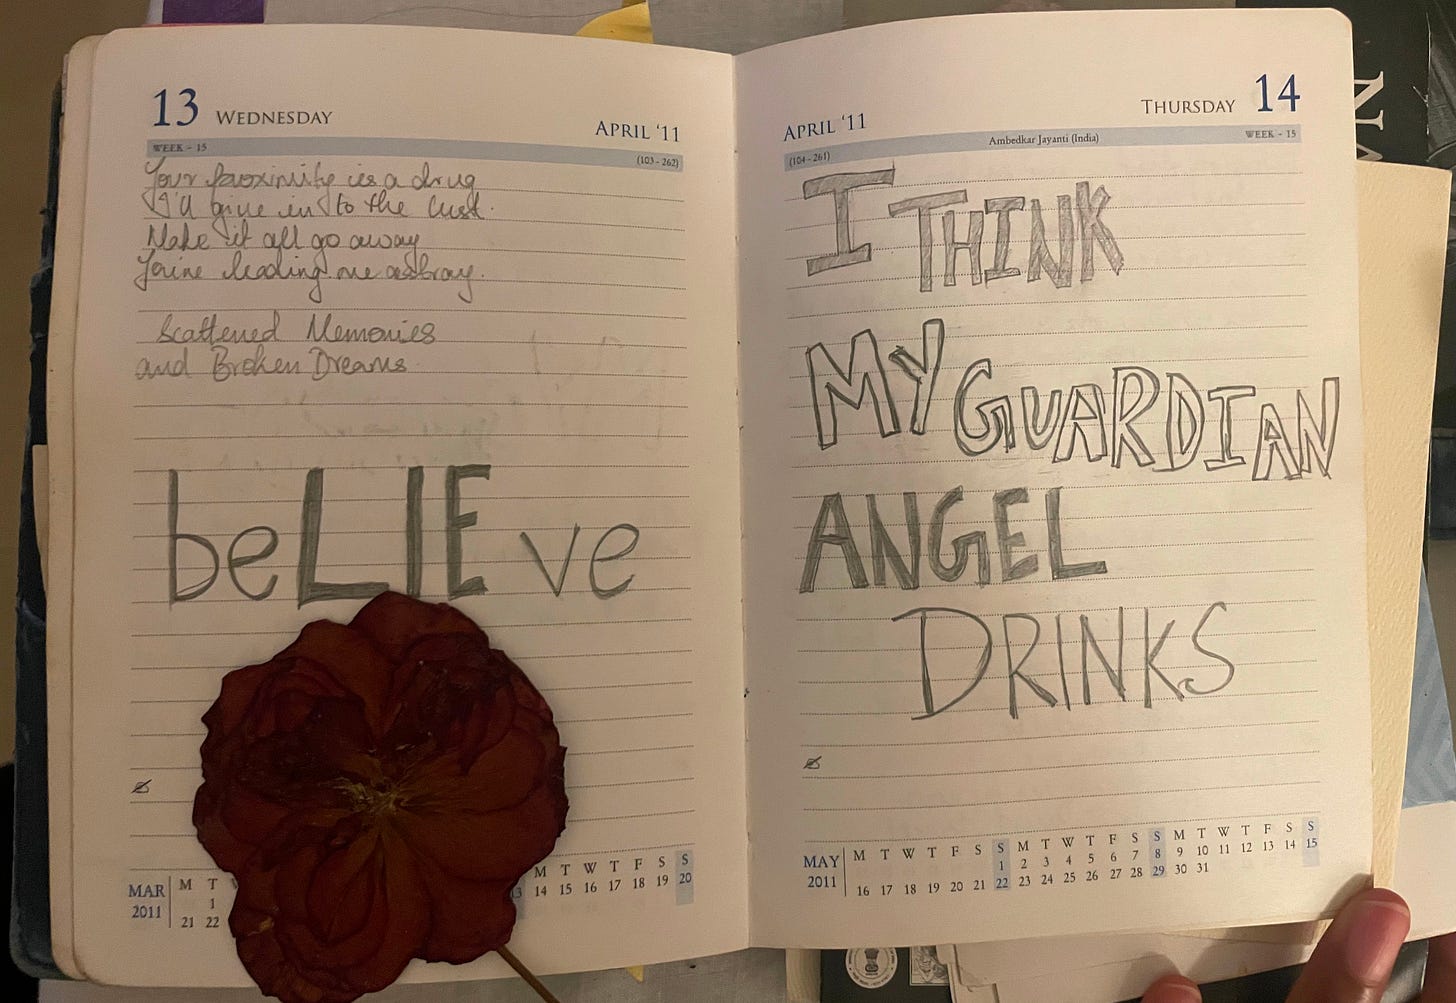 13 WEDNESDAY
APRIL '11
WEEK - 15
(103 - 262)
Your proximity is a drug
I'll give in to the lust.
Make it all go away
You're leading me astray.
Scattened Memories
and Broken Dreams.
beLIEve
MAR
2011
M T
1
21 22
M T W T F S S
13 14 15 16 17 18 19 20
THURSDAY 14
APRIL '11
Ambedkar Jayanti (India)
WEEK - 15
(104 - 261)
I THINK
MY GUARDIAN
ANGEL
DRINKS
MAY
2011
M T W T F S S M T W T F S S M T W T F S S
1 2 3 4 5 6 7 8 9 10 11 12 13 14 15
16 17 18 19 20 21 22 23 24 25 26 27 28 29 30 31
N